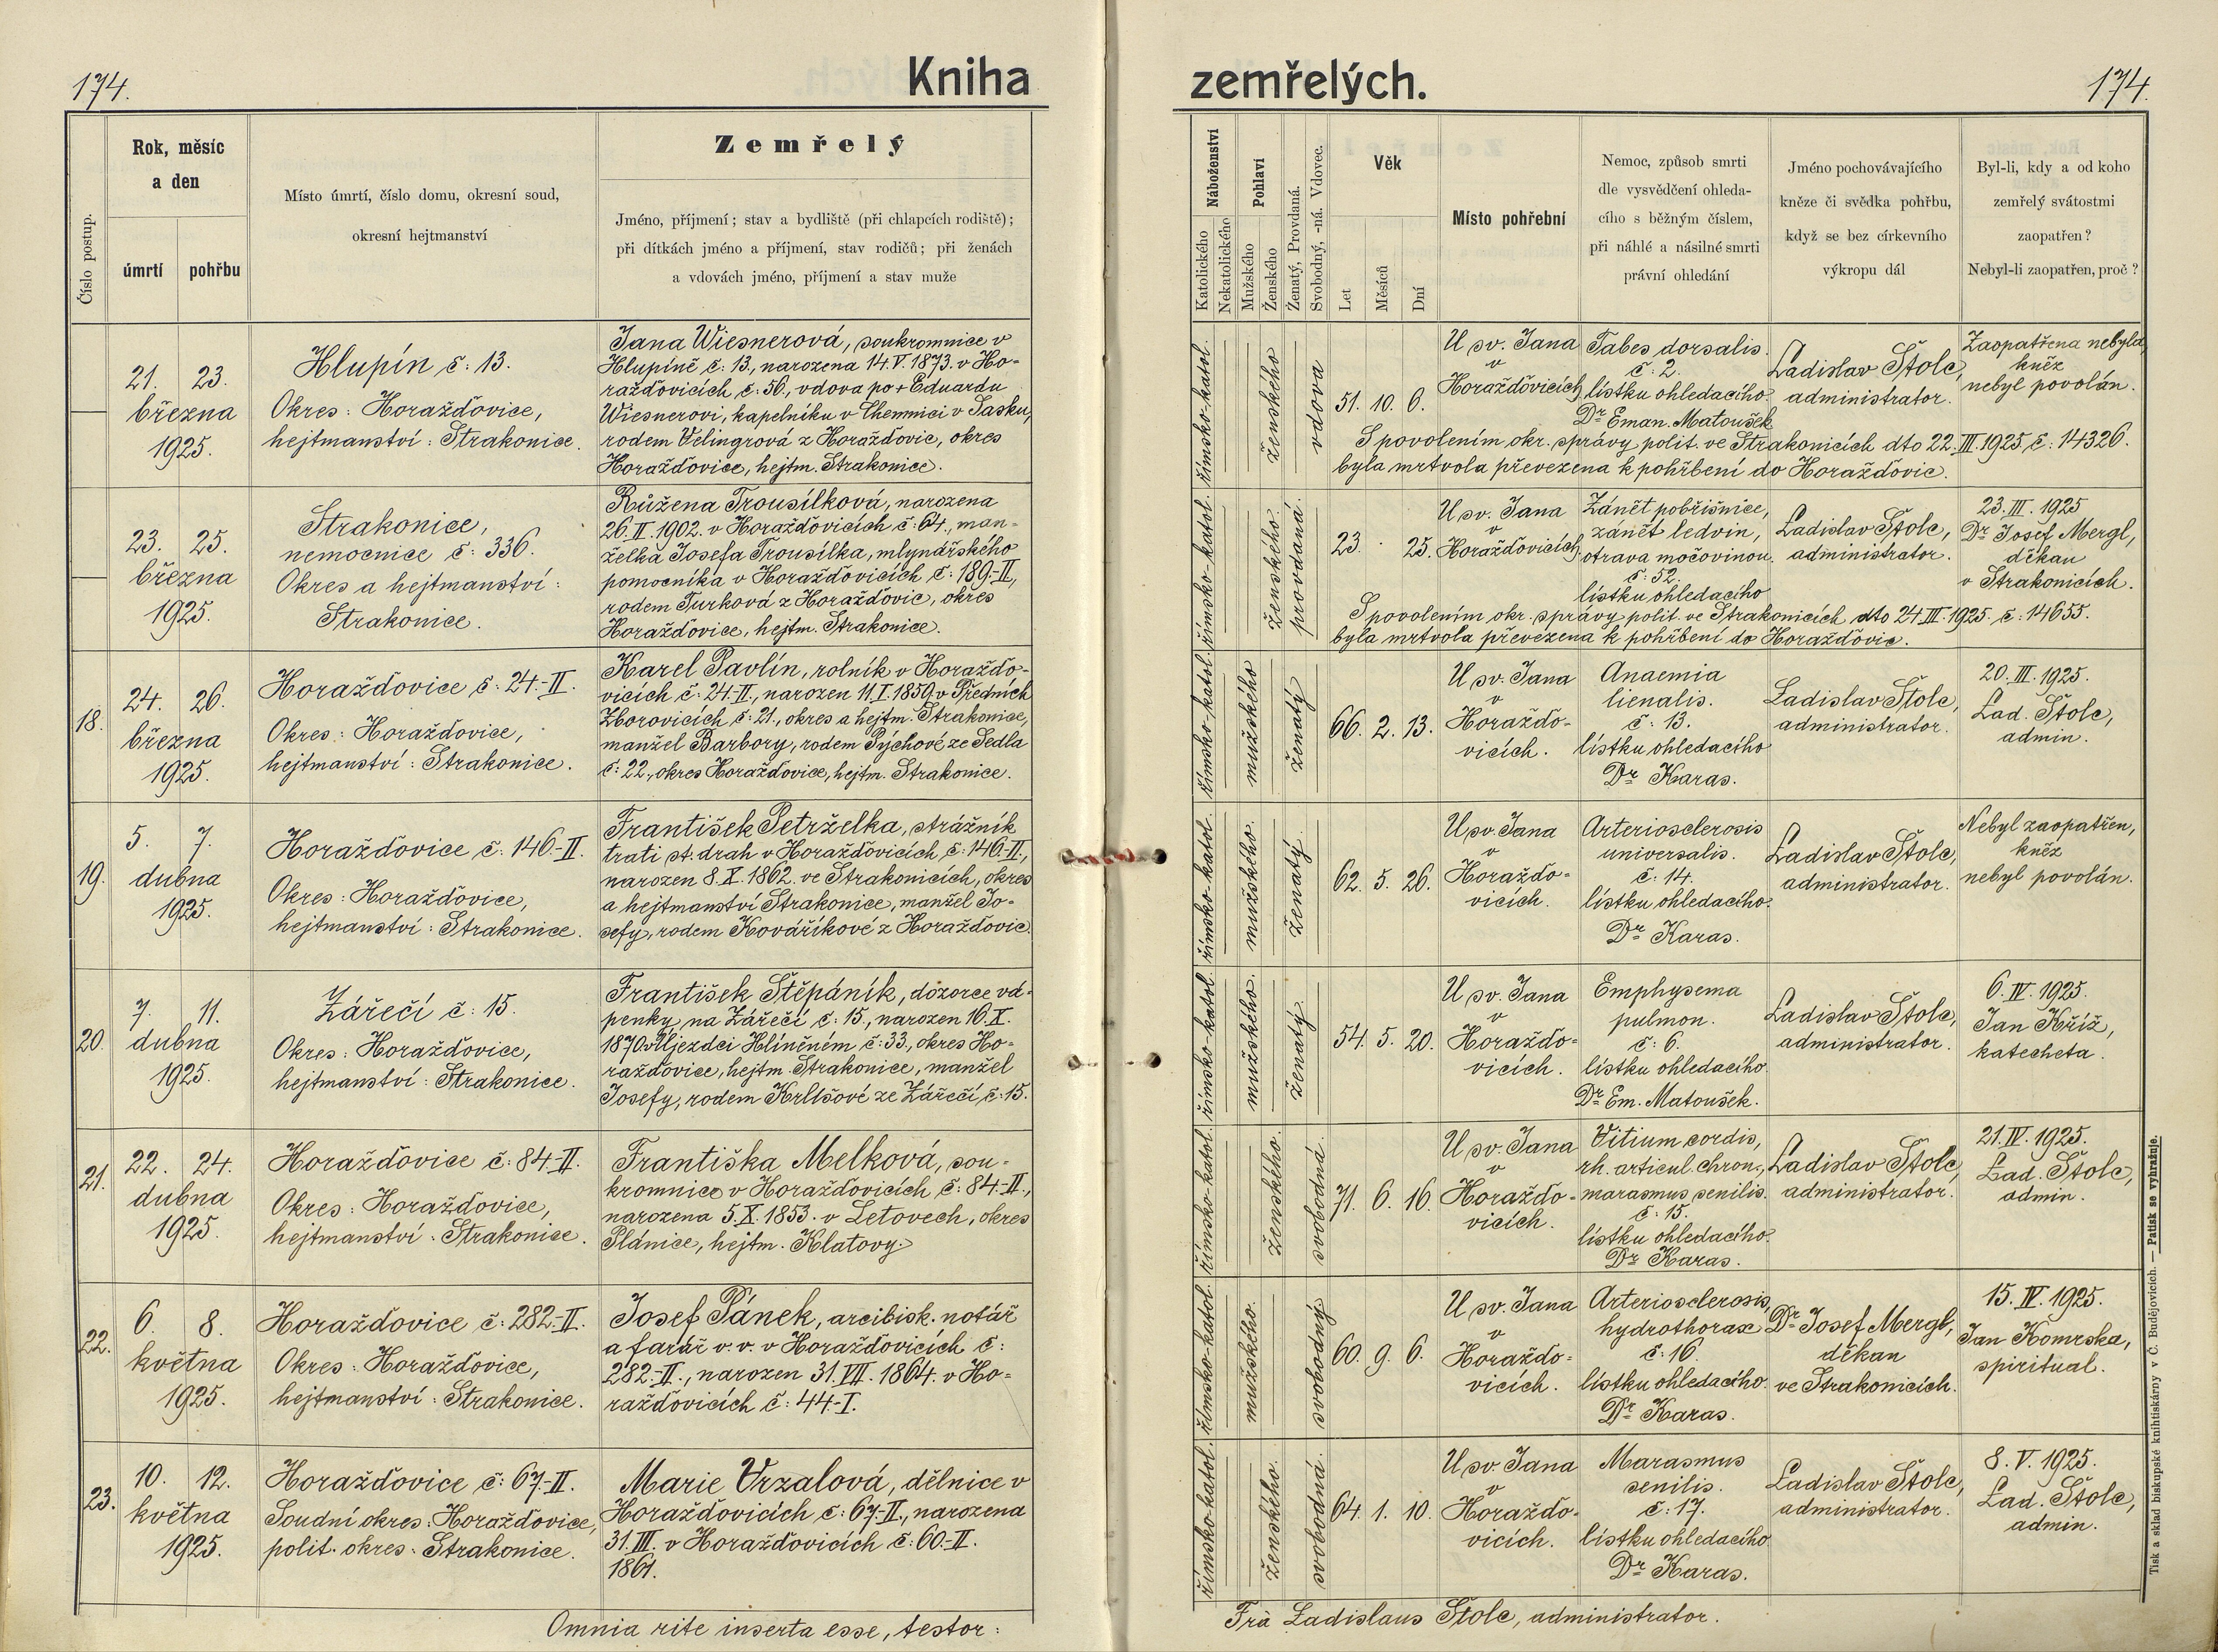 174.
Kniha
zemřelých.
174.
Číslo postup.
Rok, měsíc
a den
úmrtí
pohřbu
Místo úmrtí, číslo domu, okresní soud,
okresní hejtmanství
Zemřelý
Jméno, příjmení; stav a bydliště (při chlapcích rodiště);
při dítkách jméno a příjmení, stav rodičů; při ženách
a vdovách jméno, příjmení a stav muže
Náboženství
Katolického
Nekatolického
Pohlaví
Mužského
Ženského
Ženatý, Provdaná.
Svobodný, -ná. Vdovec.
Věk
Let
Měsíců
Dní
Místo pohřební
Nemoc, způsob smrti
dle vysvědčení ohleda-
cího s běžným číslem,
při náhlé a násilné smrti
právní ohledání
Jméno pochovávajícího
kněze či svědka pohřbu,
když se bez církevního
výkropu dál
Byl-li, kdy a od koho
zemřelý svátostmi
zaopatřen?
Nebyl-li zaopatřen, proč?
21. 23.
března
1925.
Hlupín č: 13.
Okres: Horažďovice,
hejtmanství: Strakonice.
Jana Wiesnerová, soukromnice v
Hlupíně č: 13., narozena 14.V.1873. v Ho-
ražďovicích č: 56., vdova po + Eduardu
Wiesnerovi, kapelníku v Chemnici v Sasku,
rodem Velingrová z Horažďovic, okres
Horažďovice, hejtm. Strakonice.
římsko-katol.
ženského
vdova
51. 10. 6.
U sv. Jana
v
Horažďovicích
Tabes dorsalis.
č: 2.
lístku ohledacího
Dr Eman. Matoušek
Ladislav Štolc,
administrátor.
Zaopatřena nebyla,
kněz
nebyl povolán.
S povolením okr. správy polit. ve Strakonicích dto 22.III.1925 č: 14326.
byla mrtvola převezena k pohřbení do Horažďovic.
23. 25.
března
1925.
Strakonice,
nemocnice č: 336.
Okres a hejtmanství:
Strakonice.
Růžena Trousílková, narozena
26.II.1902. v Horažďovicích č: 64., man-
želka Josefa Trousílka, mlynářského
pomocníka v Horažďovicích, č: 189.-II.,
rodem Turková z Horažďovic, okres
Horažďovice, hejtm. Strakonice.
římsko-katol.
ženského.
provdaná.
23. . 25.
U sv. Jana
v
Horažďovicích
Zánět pobřišnice,
zánět ledvin,
otrava močovinou.
č: 52.
lístku ohledacího
Ladislav Štolc,
administrator.
23. III. 1925
Dr Josef Mergl,
děkan
v Strakonicích.
S povolením okr. správy polit. ve Strakonicích dto 24.III.1925. č: 14655.
byla mrtvola převezena k pohřbení do Horažďovic.
18.
24. 26.
března
1925.
Horažďovice č: 24.-II.
Okres: Horažďovice,
hejtmanství: Strakonice.
Karel Pavlín, rolník v Horažďo-
vicích č: 24.-II., narozen 11.I.1859. v Předních
Zborovicích č: 21., okres a hejtm. Strakonice,
manžel Barbory, rodem Pýchové ze Sedla
č: 22., okres Horažďovice, hejtm. Strakonice.
římsko-katol.
mužského
ženatý
66. 2. 13.
U sv. Jana
v
Horažďo-
vicích.
Anaemia
lienalis.
č: 13.
lístku ohledacího
Dr Karas.
Ladislav Štolc,
administrator.
20. III. 1925.
Lad. Štolc,
admin.
19.
5. 7.
dubna
1925.
Horažďovice č: 146.-II.
Okres: Horažďovice,
hejtmanství: Strakonice.
František Petrželka, strážník
trati st. drah v Horažďovicích č: 146.-II.,
narozen 8.X.1862. ve Strakonicích, okres
a hejtmanství Strakonice, manžel Jo-
sefy, rodem Kováříkové z Horažďovic.
římsko-katol.
mužského.
ženatý.
62. 5. 26.
U sv. Jana
v
Horažďo-
vicích.
Arteriosclerosis
universalis.
č: 14.
lístku ohledacího.
Dr Karas.
Ladislav Štolc,
administrator.
Nebyl zaopatřen,
kněz
nebyl povolán.
20.
7. 11.
dubna
1925.
Zářečí č: 15.
Okres: Horažďovice,
hejtmanství: Strakonice.
František Štěpáník, dozorce vá-
penky na Zářečí č: 15., narozen 16.X.
1870. v Újezdci Hliněném č: 33., okres Ho-
ražďovice, hejtm. Strakonice, manžel
Josefy, rodem Krlišové ze Zářečí, č: 15.
římsko-katol.
mužského.
ženatý.
54. 5. 20.
U sv. Jana
v
Horažďo-
vicích.
Emphysema
pulmon.
č: 6.
lístku ohledacího.
Dr Em. Matoušek.
Ladislav Štolc,
administrator.
6. IV. 1925.
Jan Kříž,
katecheta.
21.
22. 24.
dubna
1925.
Horažďovice č: 84.-II.
Okres: Horažďovice,
hejtmanství: Strakonice.
Františka Melková, sou-
kromnice v Horažďovicích, č: 84.-II.,
narozena 5.X.1853. v Letovech, okres
Plánice, hejtm. Klatovy.
římsko-katol.
ženského.
svobodná.
71. 6. 16.
U sv. Jana
v
Horažďo-
vicích.
Vitium cordis,
rh. articul. chron.,
marasmus senilis.
č: 15.
lístku ohledacího.
Dr Karas.
Ladislav Štolc,
administrátor.
21. IV. 1925.
Lad. Štolc,
admin.
22.
6. 8.
května
1925.
Horažďovice č: 282.-II.
Okres: Horažďovice,
hejtmanství: Strakonice.
Josef Pánek, arcibisk. notář
a farář v. v. v Horažďovicích č:
282.-II., narozen 31.VII.1864. v Ho-
ražďovicích č: 44.-I.
římsko-katol.
mužského.
svobodný
60. 9. 6.
U sv. Jana
v
Horažďo-
vicích.
Arteriosclerosis,
hydrothorax
č: 16.
lístku ohledacího.
Dr Karas.
Dr Josef Mergl,
děkan
ve Strakonicích.
15. IV. 1925.
Jan Komrska,
spirituál.
23.
10. 12.
května
1925.
Horažďovice č: 67.-II.
Soudní okres: Horažďovice,
polit. okres: Strakonice.
Marie Vrzalová, dělnice v
Horažďovicích č: 67.-II., narozena
31.III. v Horažďovicích č: 60.-II.
1861.
římsko-katol.
ženského.
svobodná.
64. 1. 10.
U sv. Jana
v
Horažďo-
vicích.
Marasmus
senilis.
č: 17.
lístku ohledacího
Dr Karas.
Ladislav Štolc,
administrator.
8. V. 1925.
Lad. Štolc,
admin.
Omnia rite inserta esse, testor:
Fra Ladislaus Štolc, administrator.
Tisk a sklad biskupské knihtiskárny v Č. Budějovicích. — Patisk se vyhražuje.